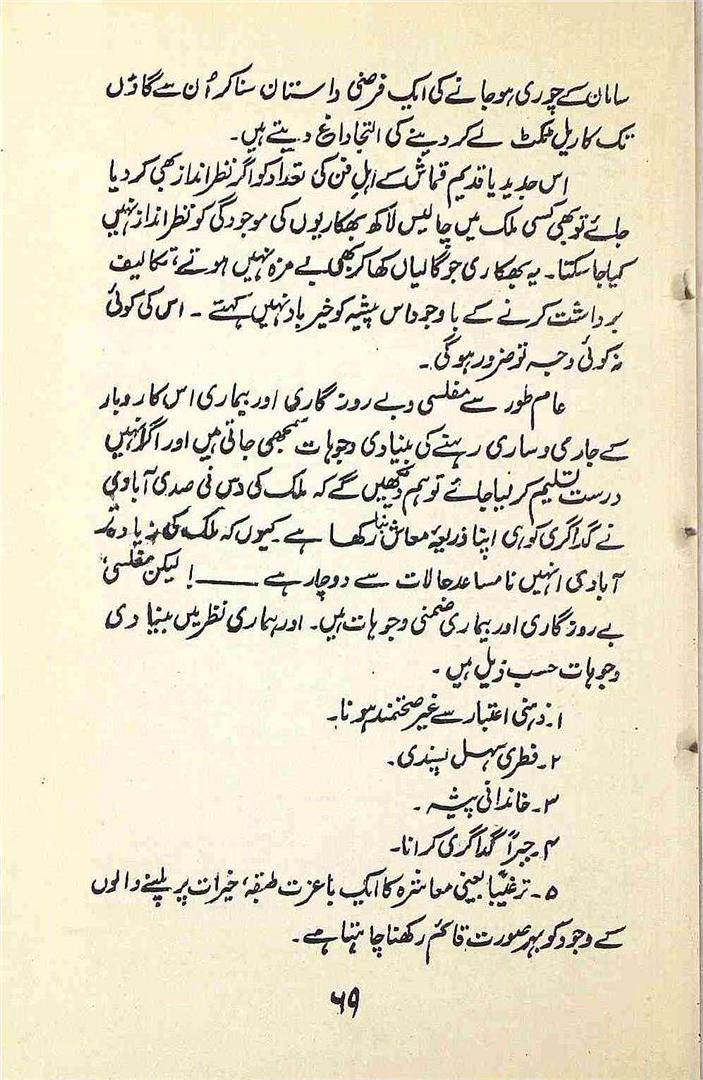 سامان کے چوری ہو جانے کی ایک فرضی داستان سنا کر اُن سے گاؤں
تک کا ریل ٹکٹ لے کر دینے کی التجا داغ دیتے ہیں۔
اس جدید یا قدیم قماش کے اہلِ فن کی تعداد کو اگر نظر انداز بھی کر دیا
جائے تو بھی کسی ملک میں چالیس لاکھ بھکاریوں کی موجودگی کو نظر انداز نہیں
کیا جا سکتا۔ یہ بھکاری جو گالیاں کھا کر بھی بے مزہ نہیں ہوتے، تکالیف
برداشت کرنے کے باوجود اس پیشہ کو خیر باد نہیں کہتے۔ اس کی کوئی
نہ کوئی وجہ تو ضرور ہوگی۔
عام طور سے مفلسی و بے روزگاری اور بیماری اس کاروبار
کے جاری و ساری رہنے کی بنیادی وجوہات سمجھی جاتی ہیں اور اگر انہیں
درست تسلیم کر لیا جائے تو ہم دیکھیں گے کہ ملک کی دس فی صدی آبادی
نے گداگری کو ہی اپنا ذریعۂ معاش بنا رکھا ہے۔ کیوں کہ ملک کی زیادہ تر
آبادی انہیں نامساعد حالات سے دوچار ہے ——! لیکن مفلسی،
بے روزگاری اور بیماری ضمنی وجوہات ہیں۔ اور ہماری نظر میں بنیادی
وجوہات حسب ذیل ہیں۔
۱۔ ذہنی اعتبار سے غیر صحتمند ہونا۔
۲۔ فطری سہل پسندی۔
۳۔ خاندانی پیشہ۔
۴۔ جبراً گداگری کرانا۔
۵۔ ترغیباً یعنی معاشرہ کا ایک باعزت طبقہ، خیرات پر پلنے والوں
کے وجود کو بہر صورت قائم رکھنا چاہتا ہے۔
۶۹